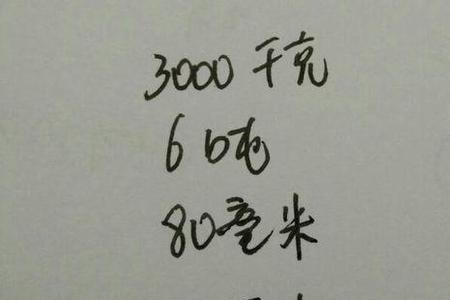 3000千克
6吨
80毫米